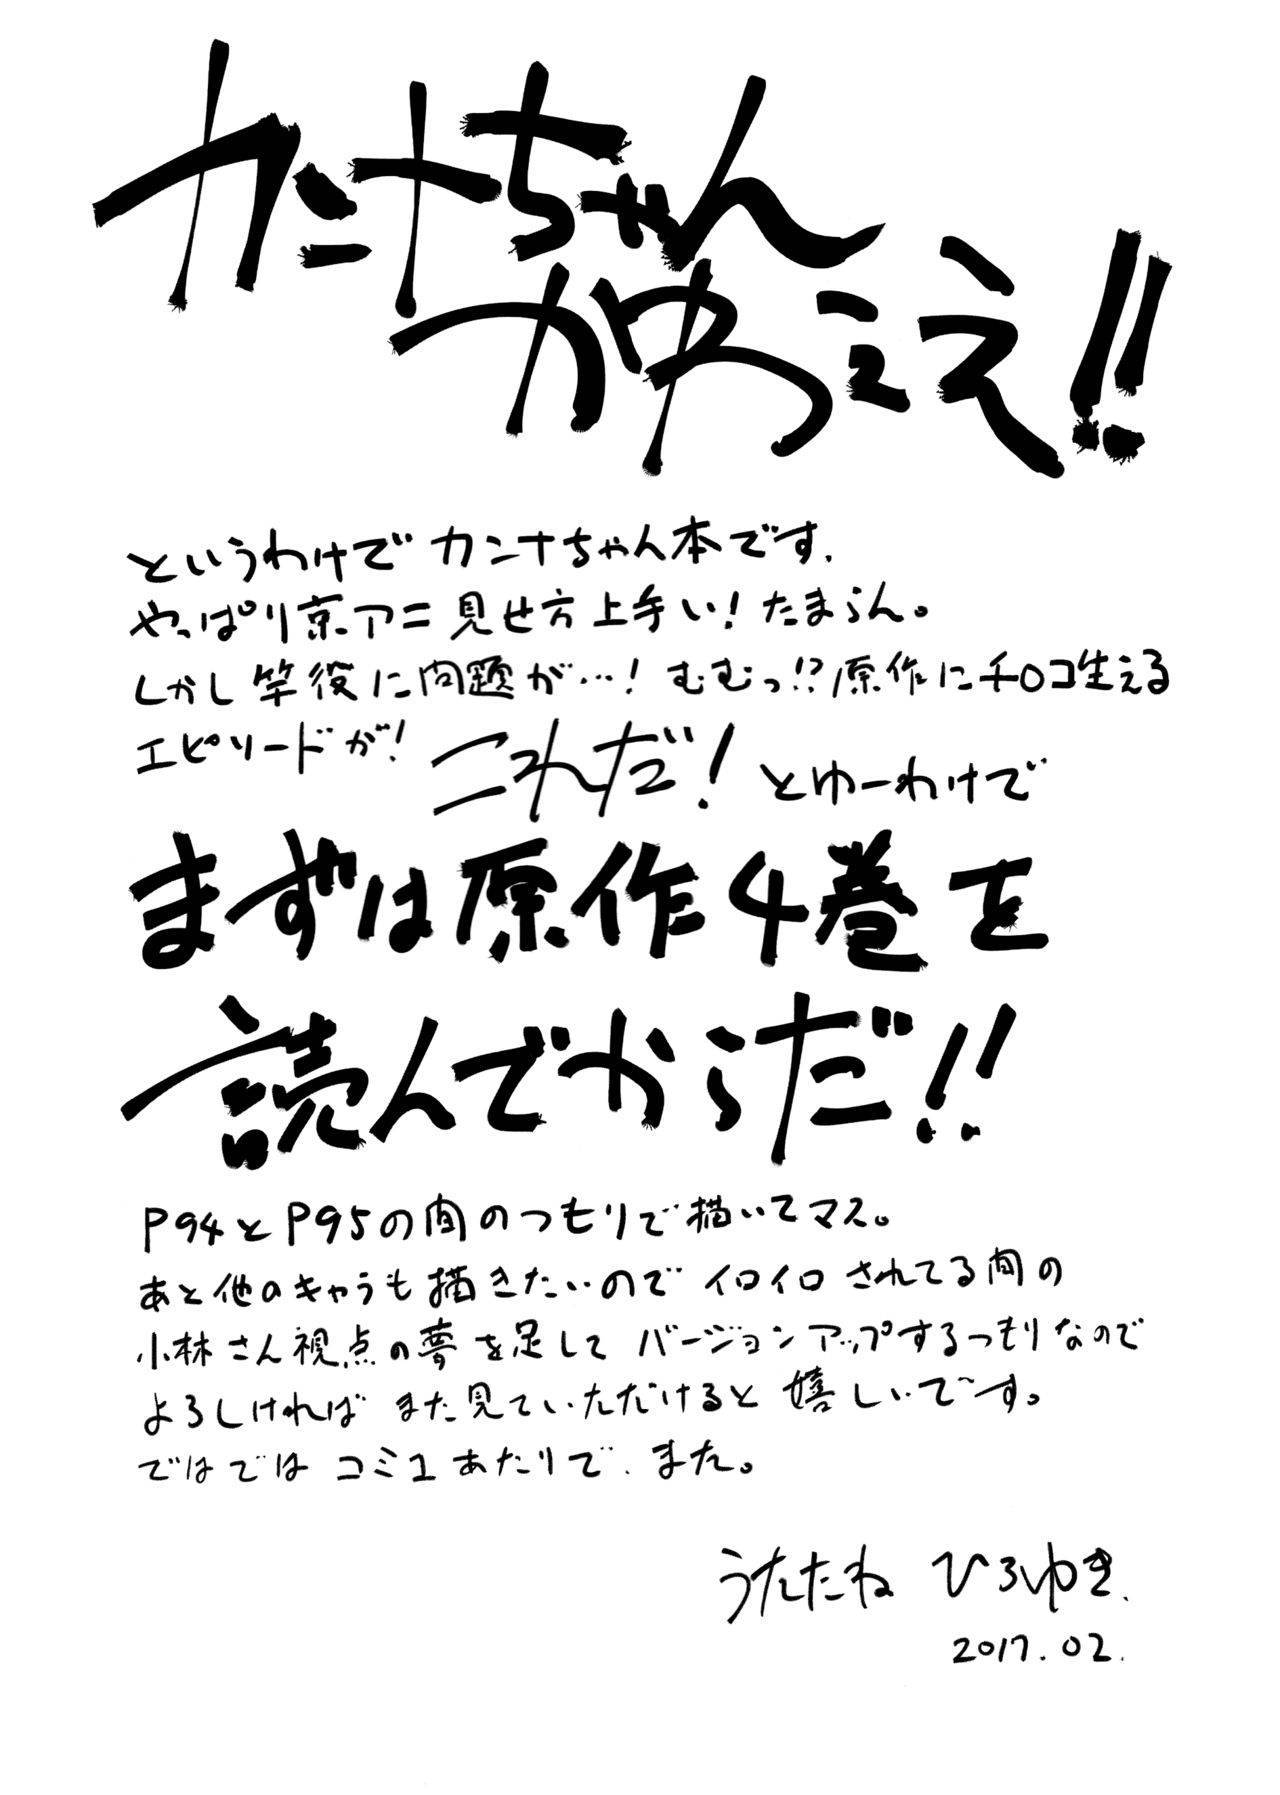 カンナちゃん
かゆぅぇえ!!
というわけで カンナちゃん本です.
やっぱり京アニ 見せ方上手い! たまらん。
しかし 竿役に問題が…! むむっ!? 原作にチロコ生える
エピソードが! これだ! とゆーわけで
まずは原作4巻を
読んでからだ!!
P94とP95の間のつもりで描いてマス。
あと他のキャラも描きたいので イロイロ されてる間の
小林さん視点の夢を足して バージョンアップするつもりなので
よろしければ また見ていただけると 嬉しいで〜す。
ではでは コミ1あたりで. また。
うたたね ひろゆき.
2017.02.